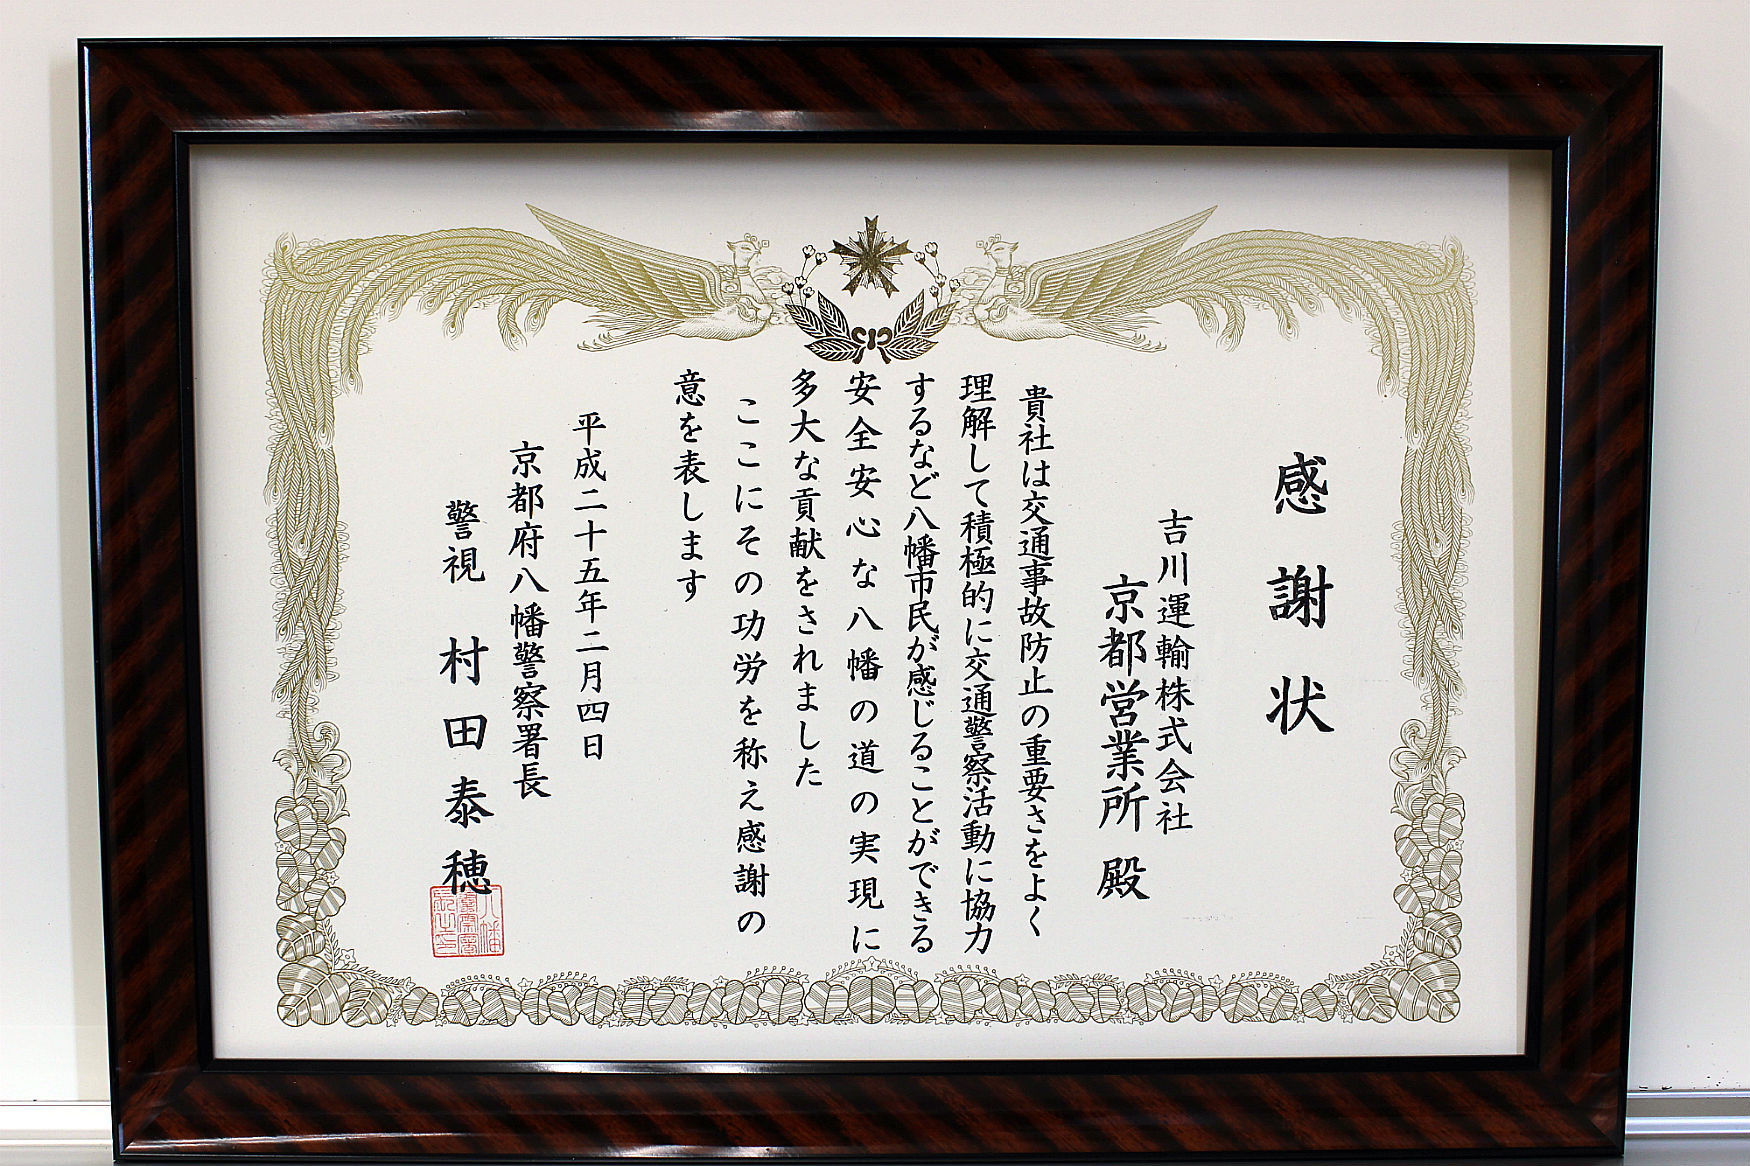 感謝状
吉川運輸株式会社
京都営業所 殿
貴社は交通事故防止の重要さをよく
理解して積極的に交通警察活動に協力
するなど八幡市民が感じることができる
安全安心な八幡の道の実現に
多大な貢献をされました
ここにその功労を称え感謝の
意を表します
平成二十五年二月四日
京都府八幡警察署長
警視 村田泰穂
八幡
警察署
長之印